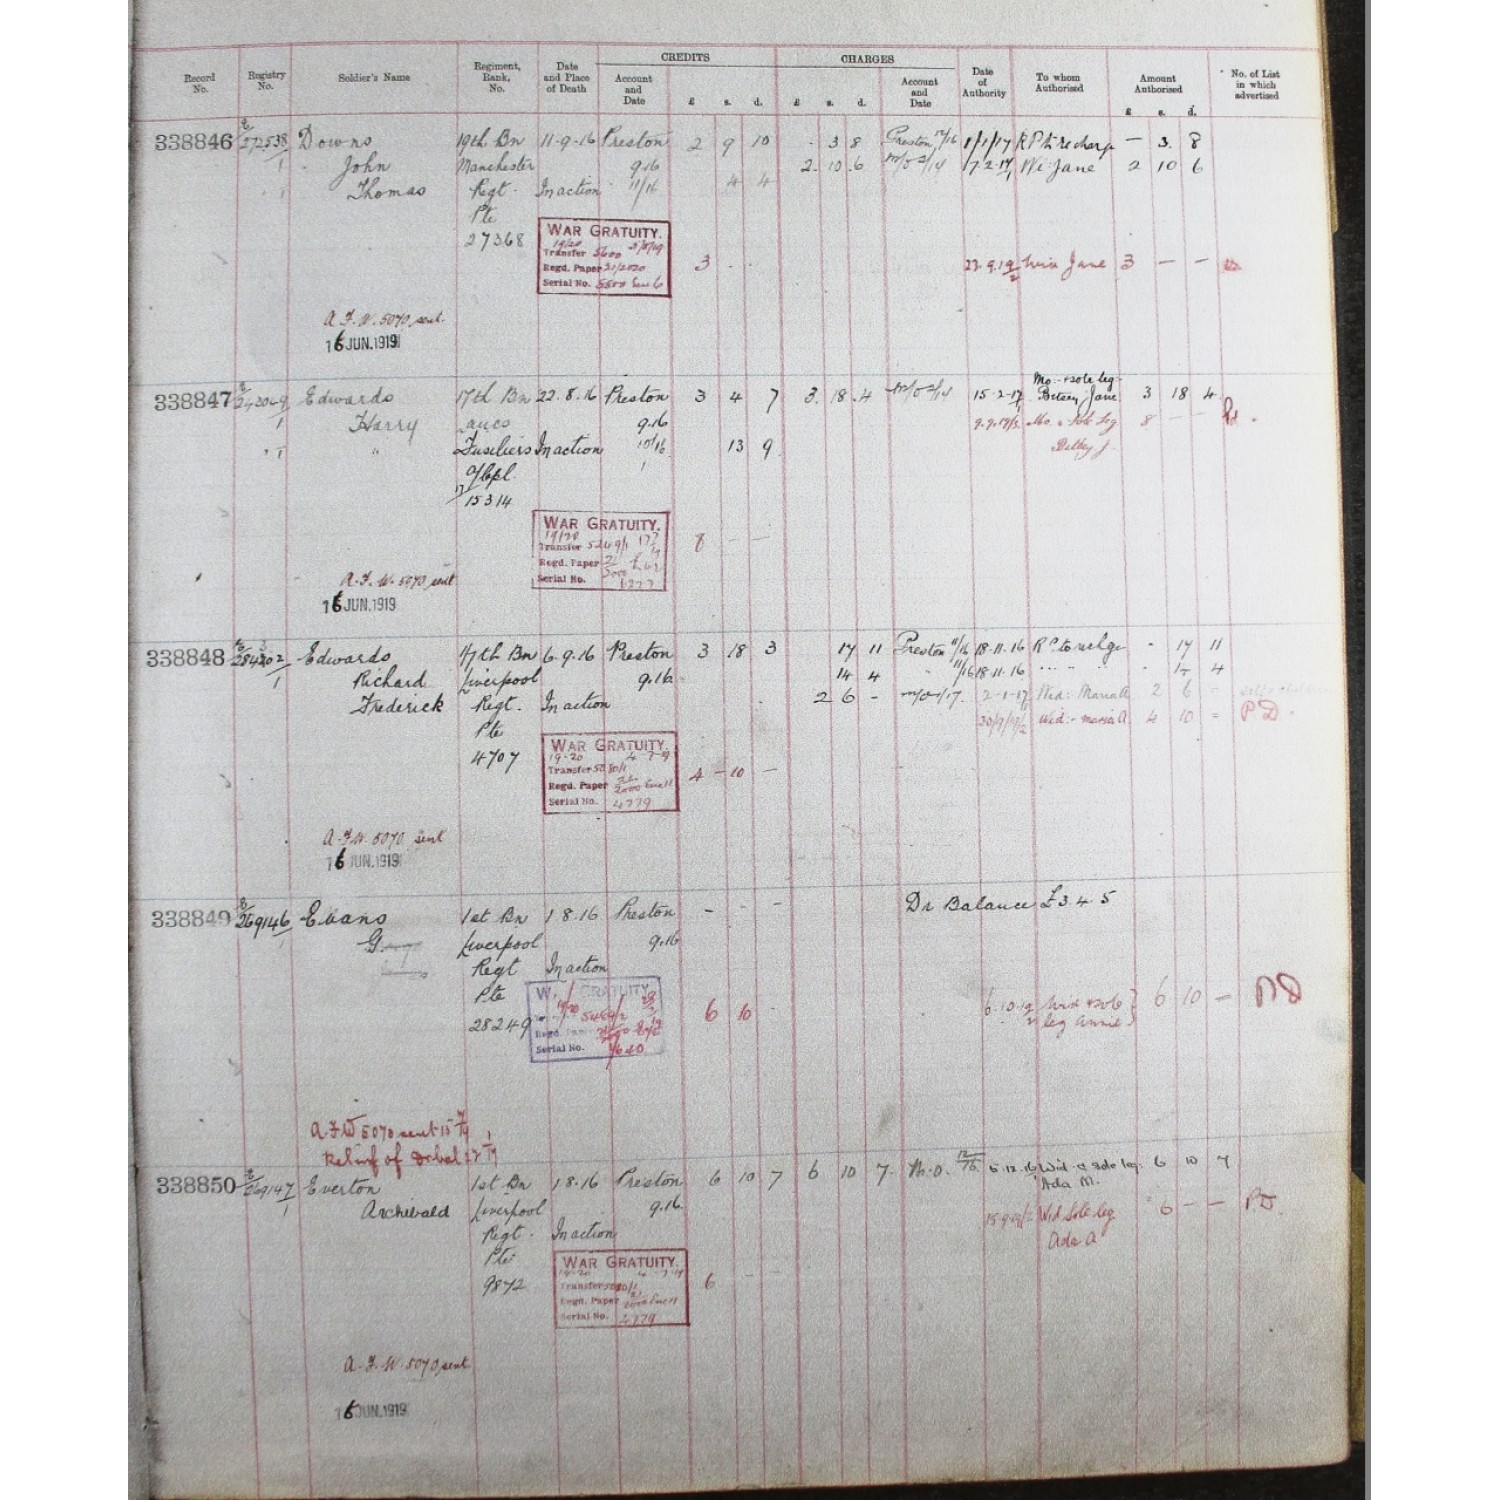 CREDITS CHARGES
Record No. Registry No. Soldier's Name Regiment, Rank, No. Date and Place of Death Account and Date £ s. d. £ s. d. Account and Date Date of Authority To whom Authorised Amount Authorised £ s. d. No. of List in which advertised
338846 Downs 19th Bn 11-9-16 Preston 2 9 10 3 8 Preston 12/16 1/1/17 RPtr recharge — 3. 8
John Manchester 9.16 2. 10. 6 Wi: Jane 2 10 6
Thomas Regt. In action 11/16 4 4
Pte
27368
WAR GRATUITY.
19/20
Transfer 5600
Regd. Paper 21/2020
Serial No.
3 Wid Jane 3 — —
A.F.W. 5070 sent.
16 JUN. 1919
338847 Edwards 17th Bn 22.8.16 Preston 3 4 7 3. 18. 4 15-2-17 Mo:- & sole leg. Betsey Jane 3 18 4
Harry Lancs 9.16 Mo. & Sole Leg 8 — —
Fusiliers In action 10/16 13 9 Betsey J.
A/Cpl.
17/15314
WAR GRATUITY.
19/20
Transfer
Regd. Paper
Serial No.
8 — —
A.F.W. 5070 sent
16 JUN. 1919
338848 Edwards 17th Bn 6.9.16 Preston 3 18 3 17 11 Preston 11/16 18.11.16 RP to rechge - 17 11
Richard Liverpool 9.16 14 4 " 11/16 18.11.16 " " 14 4
Frederick Regt. In action 2 6 - 2-1-17 Wid: Maria A 2 6 -
Pte Wid:- Maria A 4 10 = PD.
4707
WAR GRATUITY.
19-20 4-7-9
Transfer
Regd. Paper
Serial No. 4779
4 - 10 —
A.F.W. 5070 sent
16 JUN. 1919
338849 269146 Evans 1st Bn 1 8.16 Preston - - - Dr Balance £3.4.5
G. Liverpool 9.16
Regt In action
Pte
28249
GRATUITY.
Regd.
Serial No.
6 10 - 6.10.19 Wid & sole leg Annie 6 10 — PD
A.F.W 5070 sent
338850 269147 Everton 1st Bn 1 8.16 Preston 6 10 7 6 10 7. M.O. 12/16 5.12.16 Wid & sole leg. Ada M. 6 10 7
Archibald Liverpool 9.16. Wid Sole leg Ada A 6 — — PD.
Regt. In action
Pte
9872
WAR GRATUITY.
19-20
Transfer
Regd. Paper
Serial No. 4779
6 — —
A.F.W. 5070 sent
16 JUN. 1919